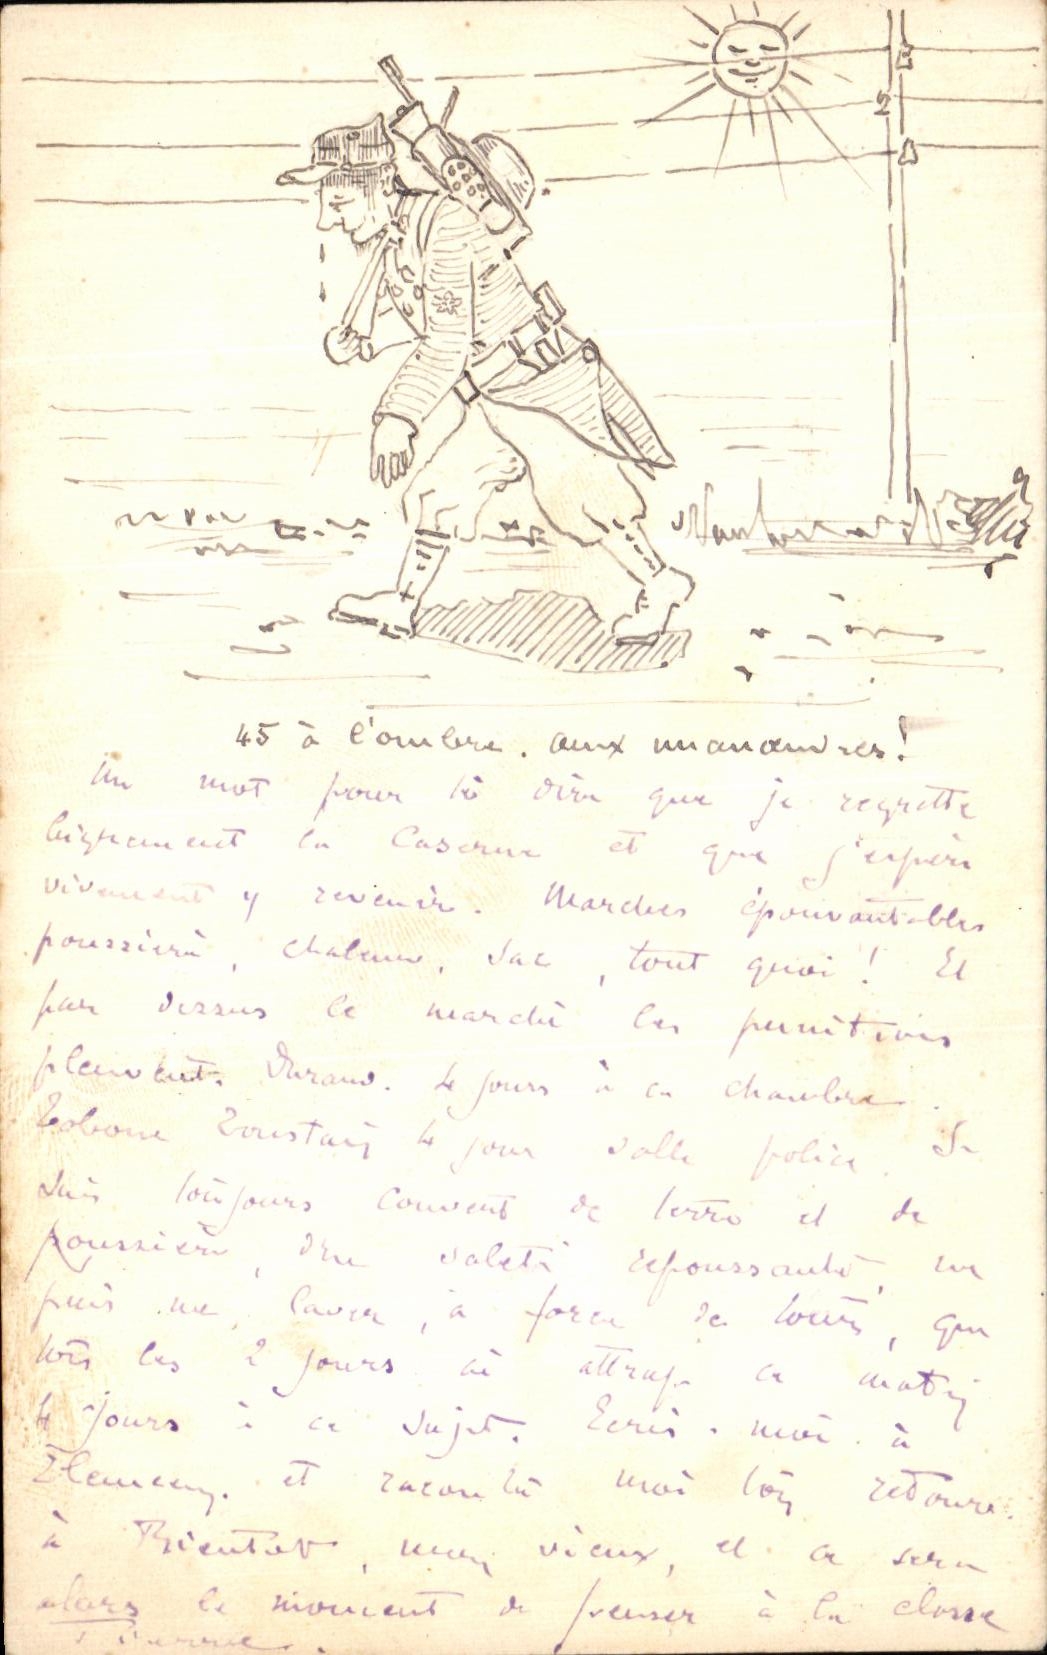 45 à l'ombre. aux manœuvres!
Un mot pour te dire que je regrette
bigrement la Caserne et que j'espère
vivement y revenir. Marches épouvantables
poussière, chaleur, sac, tout quoi! Et
par dessus le marché les punitions
pleuvent. Durand. 4 jours à la chambre.
4 jour salle police. Je
suis toujours couvert de terre et de
poussière, d'une saleté repoussante, ne
puis me laver, à force de, que
tous les 2 jours ai attrapé ce matin
4 jours à ce sujet. Ecris-moi à
et raconte moi ton retour.
à Bientôt, mon vieux, et ce sera
alors le moment de penser à la classe
Pierre.